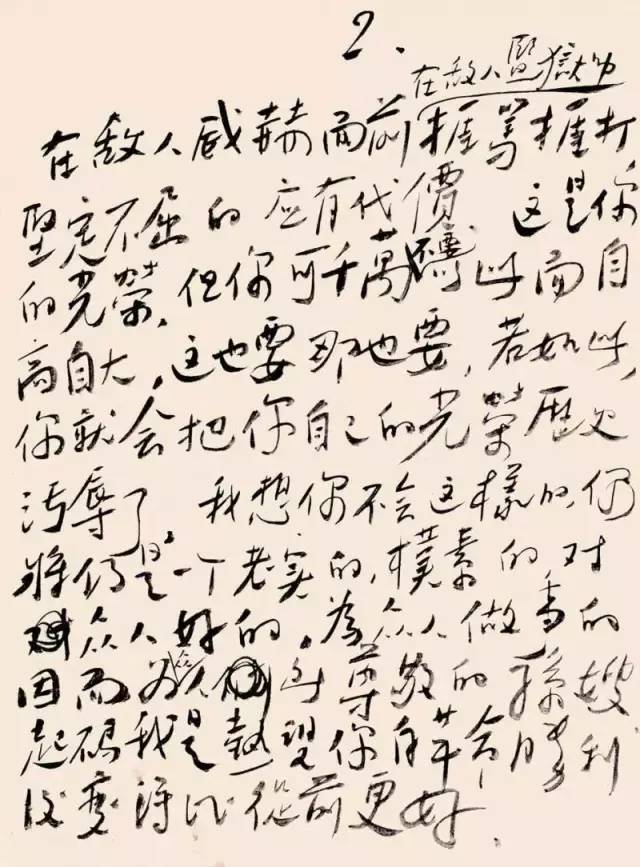 2.
在敌人监獄中
在敌人威赫面前 捱骂捱打
坚定不屈的 应有代價 这是你
的光荣,但你可千萬 此而自
高自大,这也要那也要,若如此,
你就会把你自己的光荣歷史
污辱了,我想你不会这樣的,仍
將仍是一个老实的,樸素的对
众人好的,為众人做事的
因而为众人 所尊敬的孫嫂
起码我是熱望你自革命勝利
後变得比從前更好.